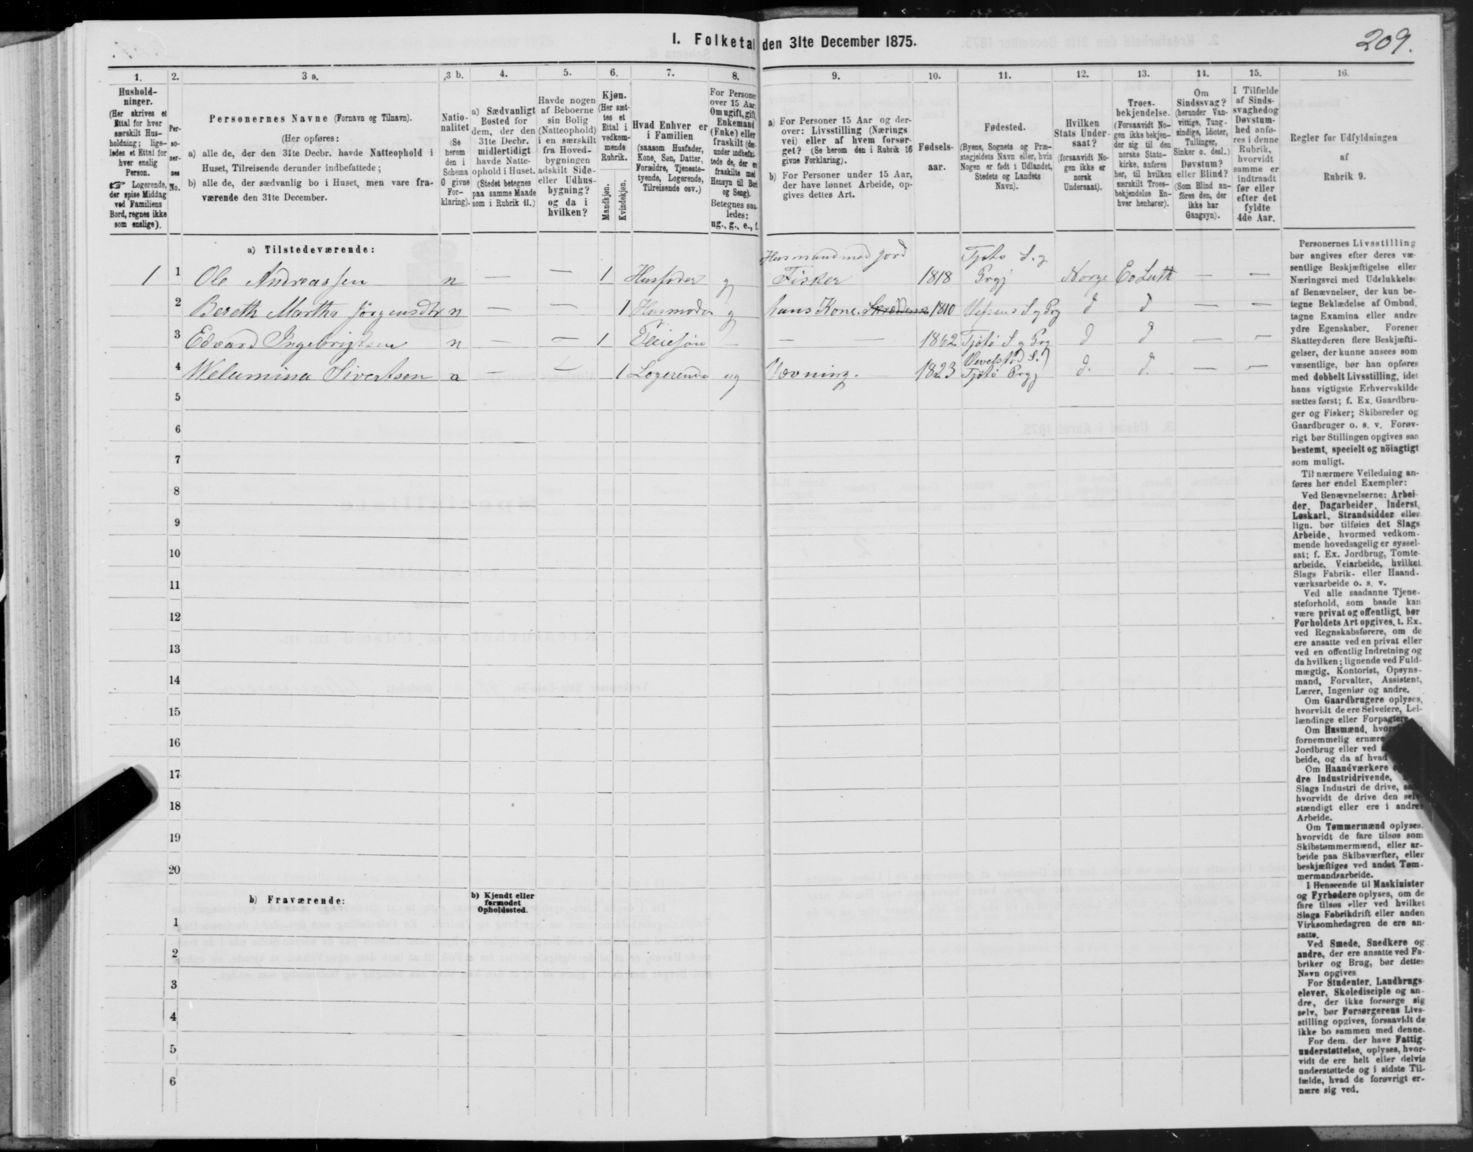 I. Folketal den 31te December 1875.
209.
1.
2.
3 a.
3 b.
4.
5.
6.
7.
8.
9.
10.
11.
12.
13.
14.
15.
16.
Husholdninger.
(Her skrives et Ettal for hver særskilt Husholdning; ligeledes et Ettal for hver enslig Person.
☞ Logerende, der spise Middag ved Familiens Bord, regnes ikke som enslige).
Personernes No.
Personernes Navne (Fornavn og Tilnavn).
(Her opføres:
a) alle de, der den 31te Decbr. havde Natteophold i Huset, Tilreisende derunder indbefattede;
b) alle de, der sædvanlig bo i Huset, men vare fraværende den 31te December.
Nationalitet
(Se herom den i Schema O givne Forklaring).
a) Sædvanligt Bosted for dem, der den 31te Decbr. midlertidigt havde Natteophold i Huset.
(Stedet betegnes paa samme Maade som i Rubrik 11.)
Havde nogen af Beboerne sin Bolig (Natteophold) i en særskilt fra Hovedbygningen adskilt Side- eller Udhusbygning?
og da i hvilken?
Kjøn.
(Her sættes et Ettal i vedkommende Rubrik.
Mandkjøn.
Kvindekjøn.
Hvad Enhver er i Familien
(saasom Husfader, Kone, Søn, Datter, Forældre, Tjenestetyende, Logerende, Tilreisende osv.)
For Personer over 15 Aar: Om ugift, gift, Enkemand (Enke) eller fraskilt
Betegnes saaledes:
ug., g., e., f.
a) For Personer 15 Aar og derover: Livsstilling (Næringsvei) eller af hvem forsørget? (Se herom den i Rubrik 16 givne Forklaring).
b) For Personer under 15 Aar, der have lønnet Arbeide, opgives dettes Art.
Fødselsaar.
Fødested.
(Byens, Sognets og Præstegjeldets Navn eller, hvis Nogen er født i Udlandet, Stedets og Landets Navn).
Hvilken Stats Undersaat?
(forsaavidt Nogen ikke er norsk Undersaat).
Troesbekjendelse.
(Forsaavidt Nogen ikke bekjender sig til den norske Statskirke, anføres her, til hvilken særskilt Troesbekjendelse Enhver henhører).
Om Sindssvag?
(herunder Vanvittige, Tungsindige, Idioter, Tullinger, Sinker o. desl.)
Døvstum?
eller Blind?
(Som Blind anføres den, der ikke har Gangsyn).
I Tilfælde af Sindssvaghed og Døvstumhed anføres i denne Rubrik, hvorvidt samme er indtraadt før eller efter det fyldte 4de Aar.
Regler for Udfyldningen
af
Rubrik 9.
a) Tilstedeværende:
1 1 Ole Andreassen n — — 1 Husfader g Husmand med jord Fisker 1818 Tjøtø S. og Prgj Norge Ev Luth — —
2 Bereth Martha Jørgensdtr n 1 Husmoder g hans Kone. 1810 S og Prg d d
3 Edvard Ingebrigtsen n — — 1 Pleiesøn — — — 1862 Tjøtø S og Prg d d — —
4 Welamina Sivertsen a — — 1 Logerende ug Vævning. 1823 Vevelstad S. Tjøtø Prgj d. d. — —
5
6
7
8
9
10
11
12
13
14
15
16
17
18
19
20
b) Fraværende:
b) Kjendt eller formodet Opholdssted.
1
2
3
4
5
6
Personernes Livsstilling
bør angives efter deres væ-
sentlige Beskjæftigelse eller
Næringsvei med Udelukkelse
af Benævnelser, der kun be-
tegne Beklædelse af Ombud,
tagne Examina eller andre
ydre Egenskaber. Forener
Skatteyderen flere Beskjæfti-
gelser, der kunne ansees som
væsentlige, bør han opføres
med dobbelt Livsstilling, idet
hans vigtigste Erhvervskilde
sættes først; f. Ex. Gaardbru-
ger og Fisker; Skibsreder og
Gaardbruger o. s. v. Forøv-
rigt bør Stillingen opgives saa
bestemt, specielt og nöiagtigt
som muligt.
Til nærmere Veiledning an-
føres her endel Exempler:
Ved Benævnelserne: Arbei-
der, Dagarbeider, Inderst,
Løskarl, Strandsidder eller
lign. bør tilføies det Slags
Arbeide, hvormed vedkom-
mende hovedsagelig er syssel-
sat; f. Ex. Jordbrug, Tomte-
arbeide, Veiarbeide, hvilket
Slags Fabrik- eller Haand-
værksarbeide o. s. v.
Ved alle saadanne Tjene-
steforhold, som baade kan
være privat og offentligt, bør
Forholdets Art opgives, t. Ex.
ved Regnskabsførere, om de
ere ansatte ved en privat eller
ved en offentlig Indretning og
da hvilken; lignende ved Fuld-
mægtig, Kontorist, Opsyns-
mand, Forvalter, Assistent,
Lærer, Ingeniør og andre.
Om Gaardbrugere oplyses,
hvorvidt de ere Selveiere, Lei-
lændinge eller Forpagtere
Om Husmænd,
fornemmelig ernære
Jordbrug eller ved
beide, og da af hvad
Om Haandværkere
dre Industridrivende,
Slags Industri de drive,
hvorvidt de drive den sel-
stændigt eller ere i andres
Arbeide.
Om Tømmermænd oplyses,
hvorvidt de fare tilsøs som
Skibstømmermænd, eller ar-
beide paa Skibsværfter, eller
beskjæftiges ved andet Tøm-
mermandsarbeide.
I Henseende til Maskinister
og Fyrbødere oplyses, om de
fare tilsøs eller ved hvilket
Slags Fabrikdrift eller anden
Virksomhedsgren de ere an-
satte.
Ved Smede, Snedkere og
andre, der ere ansatte ved Fa-
briker og Brug, bør dettes
Navn opgives
For Studenter, Landbrugs-
elever, Skoledisciple og an-
dre, der ikke forsørge sig
selv, bør Forsørgerens Livs-
stilling opgives, forsaavidt de
ikke bo sammen med denne.
For dem, der have Fattig-
understøttelse, oplyses, hvor-
vidt de ere helt eller delvis
understøttede og i sidste Til-
fælde, hvad de forøvrigt er-
nære sig ved.